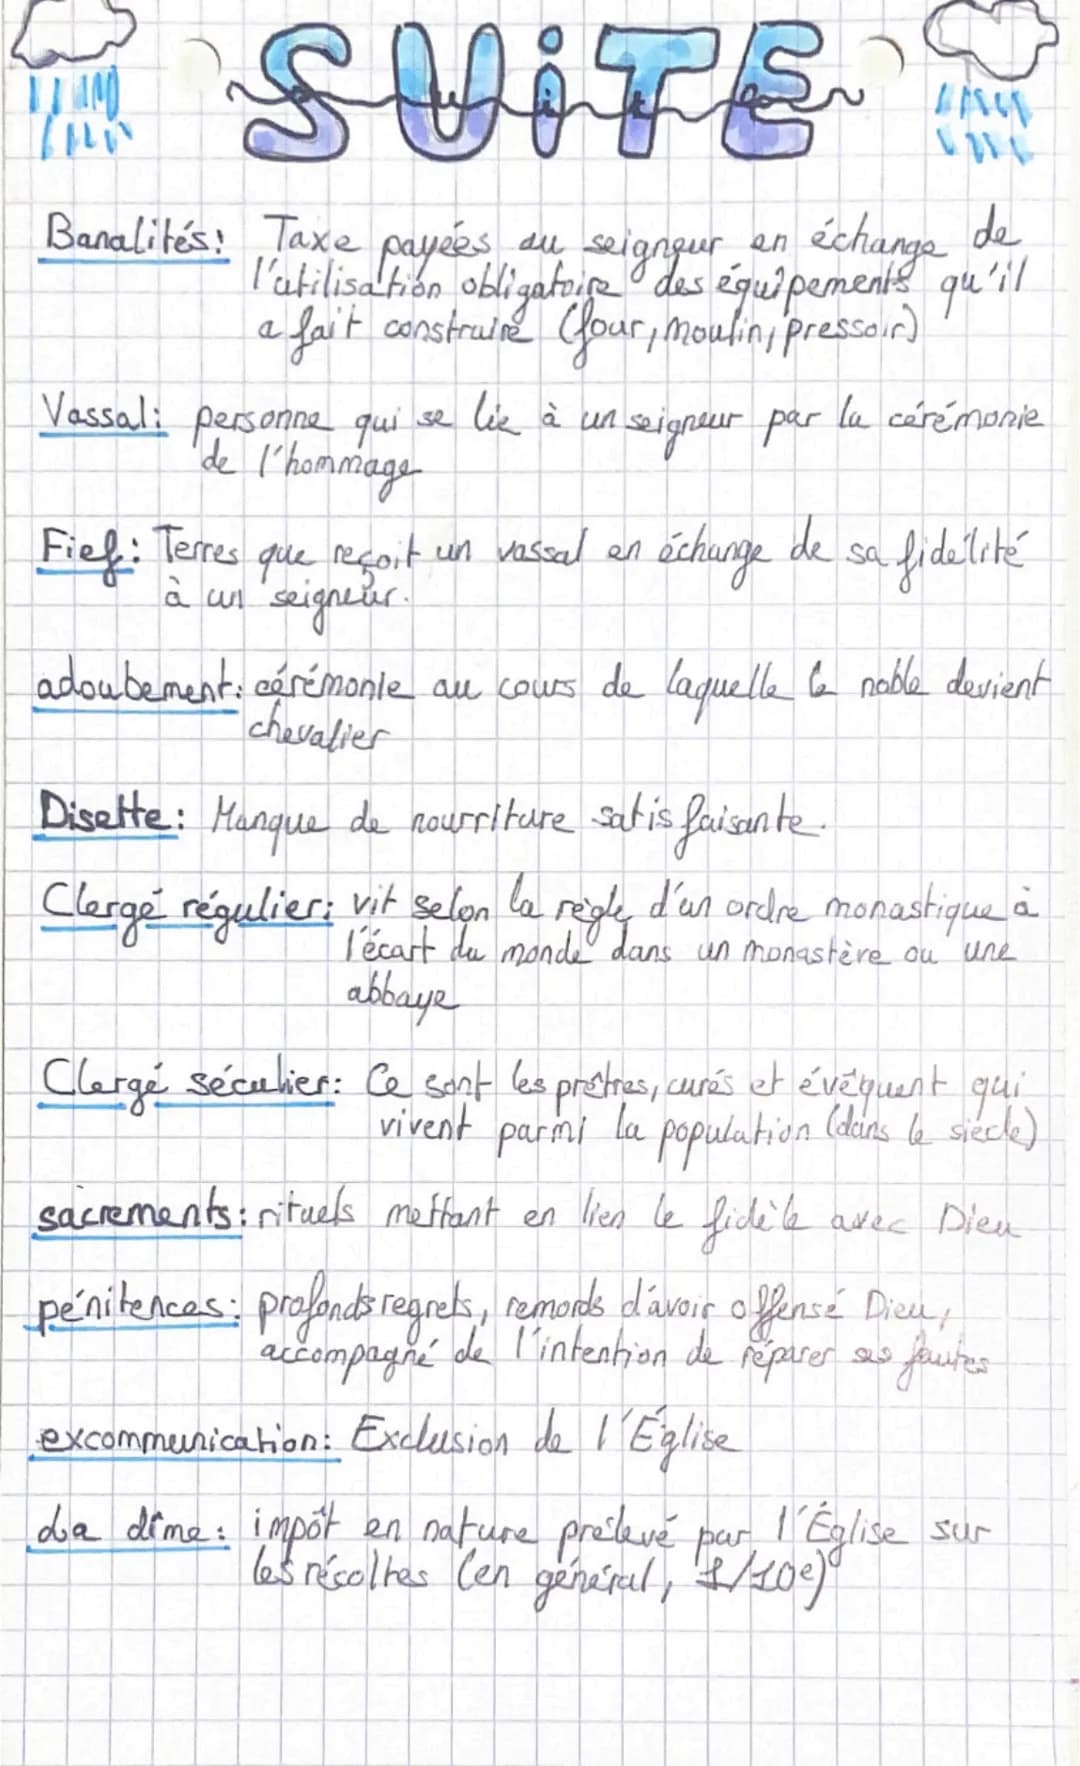 SUiTE
Banalités: Taxe payées au seigneur en échange de
l'utilisation obligatoire des équipements qu'il
a fait construire (four, moulin, pressoir)
Vassal: personne qui se lie à un seigneur par la cérémonie
de l'hommage
Fief: Terres que reçoit un vassal en échange de sa fidélité
à un seigneur.
adoubement: cérémonie au cours de laquelle le noble devient
chevalier
Disette: Manque de nourriture satisfaisante.
Clergé régulier: vit selon la règle d'un ordre monastique à
l'écart du monde dans un monastère ou une
abbaye
Clergé séculier: Ce sont les prêtres, curés et évêquent qui
vivent parmi la population (dans le siècle)
sacrements: rituels mettant en lien le fidèle avec Dieu
pénitences: profonds regrets, remords d'avoir offensé Dieu,
accompagné de l'intention de réparer ses fautes
excommunication: Exclusion de l'Église
La dîme: impôt en nature prélevé par l'Église sur
les récoltes (en général, 1/10e)